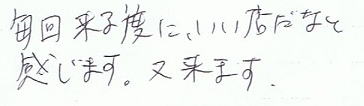 毎回来る度に、いい店だなと
感じます。又来ます.